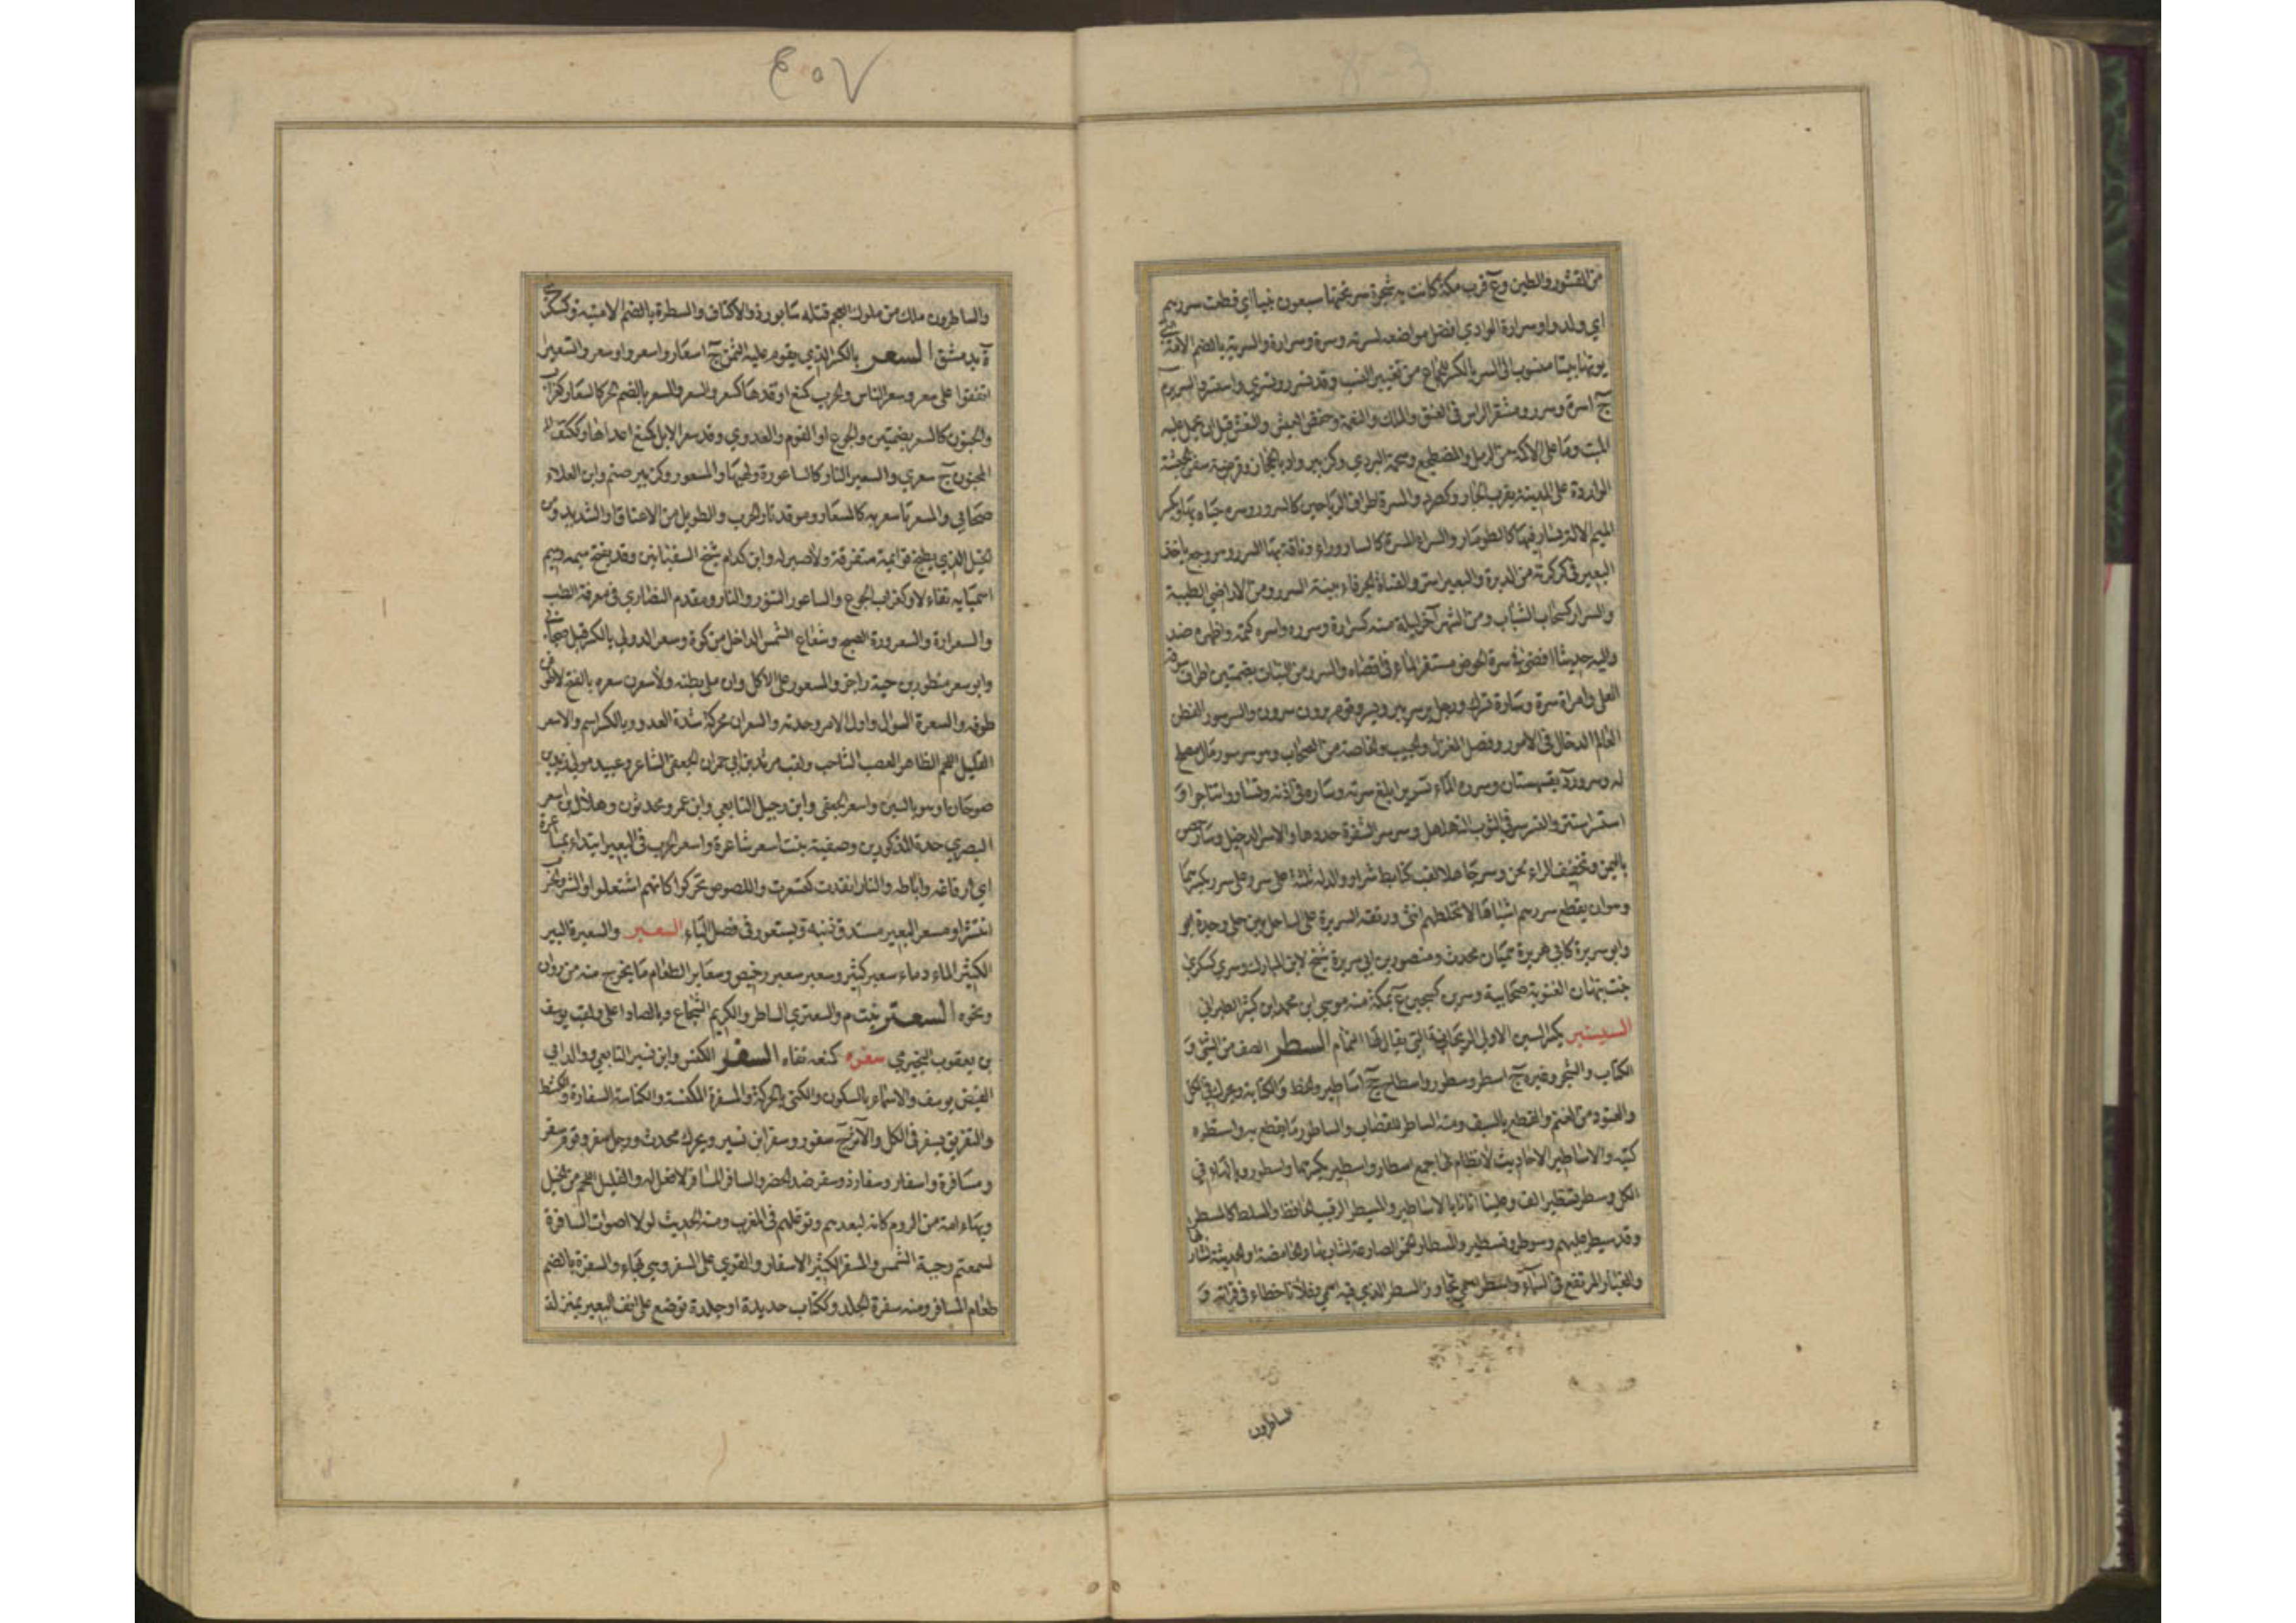 من القشور والطين وع قرب مكة كانت به شجرة سر تحتها سبعون نبيا اي قطعت سررهم
اي ولدوا وسرارة الوادي افضل مواضعه كسرته وسره وسراره والسرية بالضم الامة التي
بوّأتها بيتا منسوب الى السر بالكسر للجماع من تغيير النسب وقد تسرر وتسرى واستسر والسرير م
ج اسرة وسرر ومستقر الراس في العنق والملك والنعمة وخفض العيش والنعش قبل ان يحمل عليه
الميت وما على الاكمة من الرمل والمضطجع وشحمة البردي وكزبير واد بالحجاز وفرضة سفن الحبشة
الواردة على المدينة بقرب الجار وكصرد والمسرة اطراف الرياحين كالسرور وسره حياه بها وبكسر
الميم الآلة يسار فيها كالطومار والسراء المسرة كالساروراء وناقة بها السرر وهو وجع ياخذ
البعير في كركرته من الدبرة والبعير اسر والقناة الجوفاء بينة السرر ومن الاراضي الطيبة
والسرار كسحاب الشباب ومن الشهر آخر ليلة منه كسراره وسرره واسره كتمه واظهره ضد
واليه حديثا افضى وسرة الحوض مستقر الماء في اقصاه والسرر من النبات بضمتين اطراف سوقه
العلى وامراة سرة وسارة تسرك ورجل بر سر يبر ويسر وقوم برون سرون والسرسور الفطن
العالم الدخال في الامور ونصل المغزل والحبيب والخاصة من الصحاب وهو سرسور مال مصلح
له وسرورد بقهستان وسره الماء تسريرا بلغ سرته وساره في اذنه وتساروا تناجوا و
استسر استتر والتسرسر في الثوب التهلهل وسرسر الشفرة حددها والاسر الدخيل وسار حصن
باليمن وتخفيف الراء لحن وسر جاهلا لقب كتابط شرا وولد له ثلثة على سر وعلى سرر بكسرهما
وهو ان يقطع سررهم اشباها لا تخلطهم انثى ورتقة السريرة على الساحل بين حلي وجدة
وابو سريرة كابي هريرة هميان محدث ومنصور بن ابي سريرة شيخ لابن المبارك وسرى كسكرى
بنت نبهان الغنوية صحابية وسرين كسجين ع بمكة منه موسى بن محمد بن كثير الطبراني
السيسنبر بكسر السين الاولى الريحانة التي يقال لها النمام السطر الصف من الشيء و
الكتاب والشجر وغيره ج اسطر وسطور واسطار جج اساطير والخط والكتابة ويحرك في الكل
والعتود من الغنم والقطع بالسيف ومنه الساطر للقصاب والساطور لما يقطع به واستطره
كتبه والاساطير الاحاديث لا نظام لها جمع اسطار واسطير بكسرهما واسطور وبالهاء في
الكل وسطر تسطيرا الف وعلينا اتانا بالاساطير والمسيطر الرقيب الحافظ والمتسلط كالمسطر
وقد سيطر عليهم وسوطر وتسيطر والمسطار الخمر الصارعة لشاربها او الحامضة او الحديثة
والغبار المرتفع في السماء واسطر اسمي تجاوز السطر الذي فيه اسمي وفلان اخطا في قراءته و
الساطرون
٤٠٧
والساطرون ملك من ملوك العجم قتله سابور ذو الاكتاف والسطرة بالضم الامنية وكسكرى
ة بدمشق السعر بالكسر الذي يقوم عليه الثمن ج اسعار واسعروا وسعروا تسعيرا
اتفقوا على سعر وسعر النار والحرب كمنع اوقدها كسعر واسعر والسعر بالضم الحر كالسعار كغراب
والجنون كالسعر بضمتين والجوع او القرم والعدوى وقد سعر الابل كمنع اعداها وككتف
المجنون ج سعرى والسعير النار كالساعورة ولهبها والمسعور وكزبير صنم وابن العداء
صحابي والمسعر ما سعر به كالمسعار وموقد نار الحرب والطويل من الاعناق او الشديد ومن
الخيل الذي يطيح قوائمه متفرقة ولا ضبر له وابن كدام شيخ السفيانين وقد يفتح ميمه وميم
اسميائه تفاءلا وكغراب الجوع والساعور التنور والنار ومقدم النصارى في معرفة الطب
والسعرارة والسعرورة الصبح وشعاع الشمس الداخل من كوة وسعر الدولي بالكسر قيل صحابي
وابو سعر منظور بن حبة راجز والمسعور على الاكل وان ملئ بطنه ولاسعرن سعره بالفتح لاطوفن
طوفه والسعرة السعال واول الامر وحدته والسعران محركة شدة العدو وبالكسر اسم والاسعر
القليل اللحم الظاهر العصب الشاحب ولقب مرثد بن ابي حمران الجعفي الشاعر وعبيد مولى زيد بن
صوحان او هو بالشين واسعر الجعفي وابن رحيل التابعي وابن عمرو محدثون وهلال بن اسعر
البصري احد الاكالين المذكورين وصفية بنت اسعر شاعرة واستعر الجرب في البعير ابتداء بمساعره
اي ارفاغه وآباطه والنار اتقدت كتسعرت واللصوص تحركوا كانهم اشتعلوا والشر والحرب
انتشرا ومسعر البعير مستدق ذنبه ويستعور في فصل الياء السعبر والسعبرة البير
الكثيرة الماء وماء سعبر كثير وسعر سعبر رخيص وسعابر الطعام ما يخرج منه من زوان
ونحوه السعتر نبت م والسعتري الشاطر والكريم الشجاع وبالصاد اعلى ولقب يوسف
بن يعقوب النجيرمي سغره كمنعه نفاه السفر الكنس وابن نسير التابعي ووالد ابي
الفيض يوسف والاسماء بالسكون والكنى بالحركة والمسفرة المكنسة والكناسة السفارة والكشط
والتفريق يسفر في الكل والاثر ج سفور وسفر ابن نسير ويحرك محدث ورجل سفر وقوم سفر
ومسافرة واسفار وسفار ذوو سفر ضد الحضر والسافر المسافر لا فعل له والقليل اللحم من الخيل
وبهاء امة من الروم كانه لبعدهم وتوغلهم في المغرب ومنه الحديث لولا اصوات السافرة
لسمعتم وجبة الشمس والمسفر الكثير الاسفار والقوي على السفر وهي بهاء والسفرة بالضم
طعام المسافر ومنه سفرة الجلد وككتاب حديدة او جلدة توضع على انف البعير بمنزلة